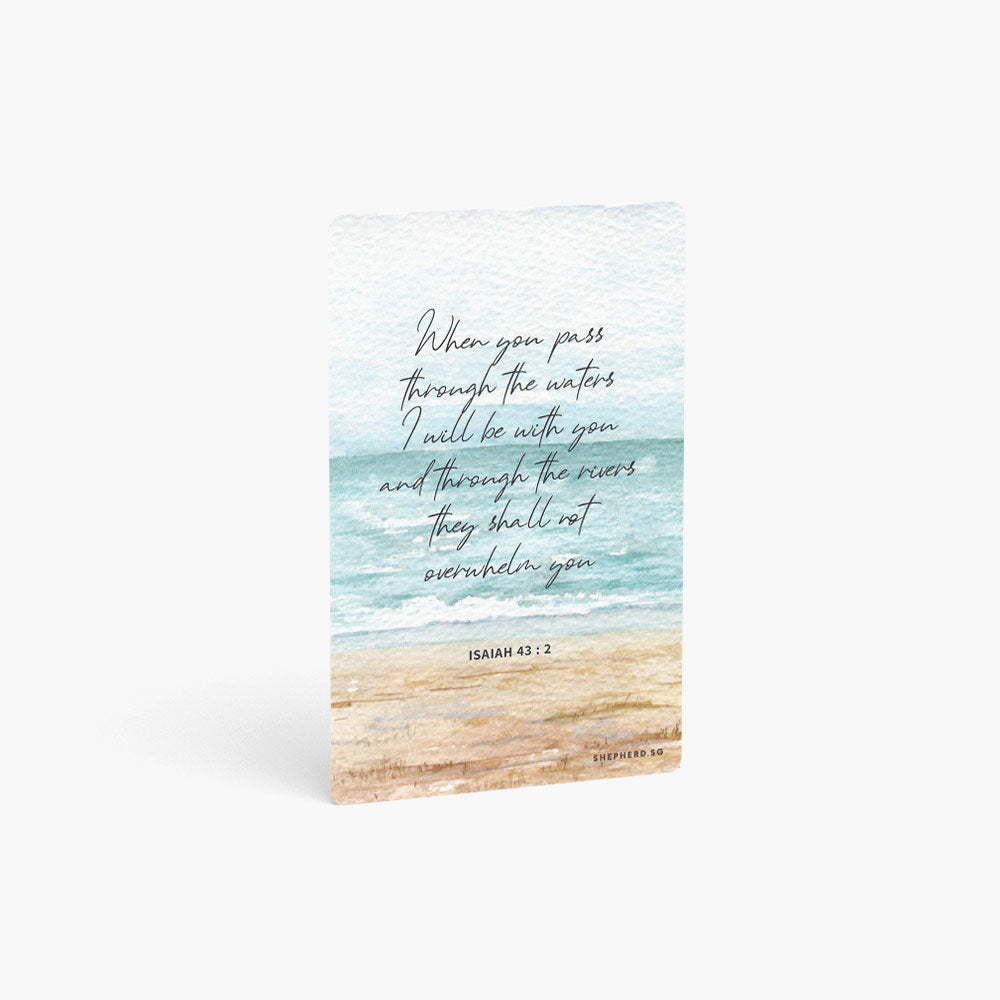 When you pass
through the waters
I will be with you
and through the rivers
they shall not
overwhelm you
ISAIAH 43 : 2
SHEPHERD.SG